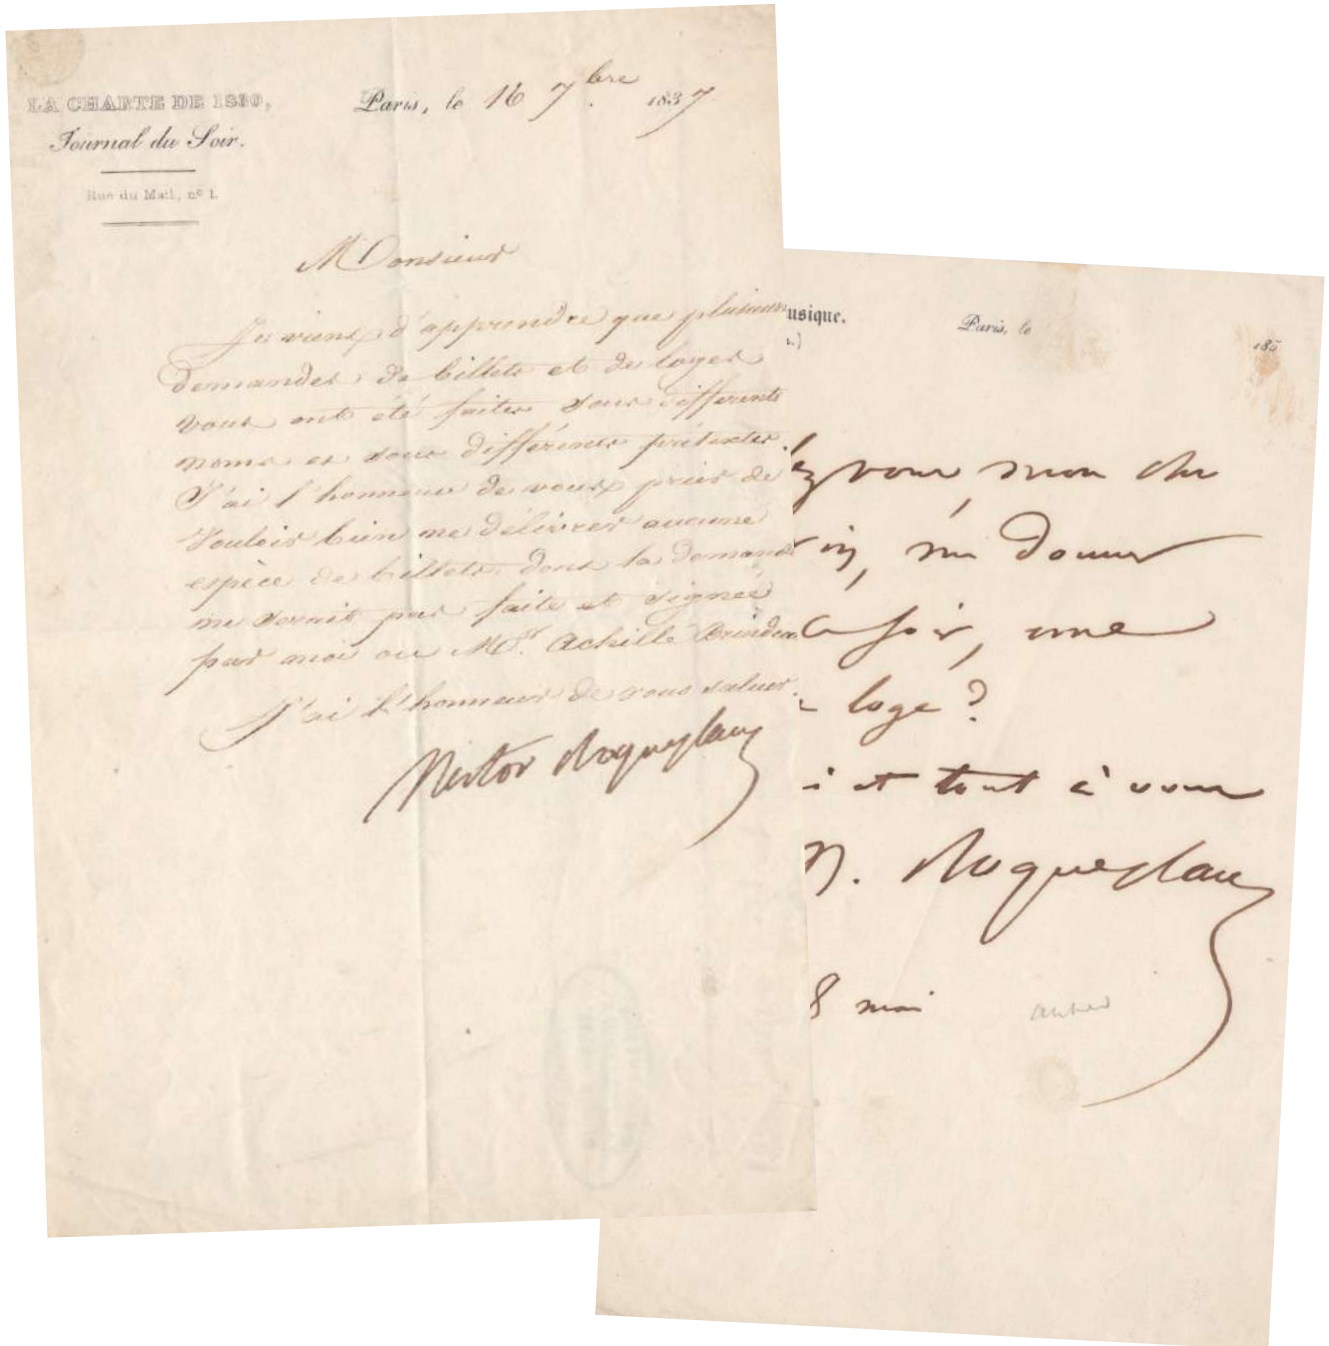 LA CHARTE DE 1830,
Journal du Soir.
Rue du Mail, nº 1.
Paris, le 16 7bre 1837
Monsieur
Je viens d'apprendre que plusieurs
demandes de billets et de loges
vous ont été faites sous différents
noms et sous différents prétextes.
J'ai l'honneur de vous prier de
vouloir bien ne délivrer aucune
espèce de billets dont la demande
ne serait pas faite et signée
par moi ou Mr. Achille Brindeau
J'ai l'honneur de vous saluer.
Nestor Roqueplan
usique.
Paris, le 185
ez vous mon cher
in, me donner
ce soir, une
loge?
i et tout à vous
N. Roqueplan
8 mai